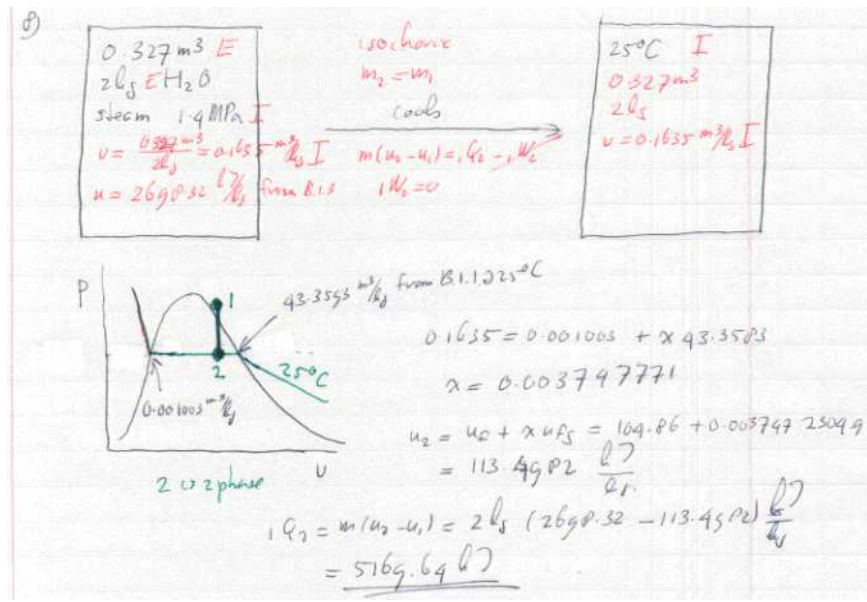 8)
0.327 m³ E
2 kg E H₂O
steam 1.4 MPa I
v = 0.327 m³ / 2 kg = 0.1635 m³/kg I
u = 2698.32 kJ/kg from B.1.3
isochoric
m₂ = m₁
cools
m(u₂ - u₁) = ₁Q₂ - ₁W₂
₁W₂ = 0
25°C I
0.327 m³
2 kg
v = 0.1635 m³/kg I
P
1
2
25°C
43.3593 m³/kg from B.1.1 @ 25°C
0.001003 m³/kg
v
2 is 2 phase
0.1635 = 0.001003 + x 43.3583
x = 0.003747771
u₂ = uf + x ufg = 104.86 + 0.003747 2304.9
= 113.4982 kJ/kg
₁Q₂ = m(u₂ - u₁) = 2 kg (2698.32 - 113.4982) kJ/kg
= 5169.64 kJ